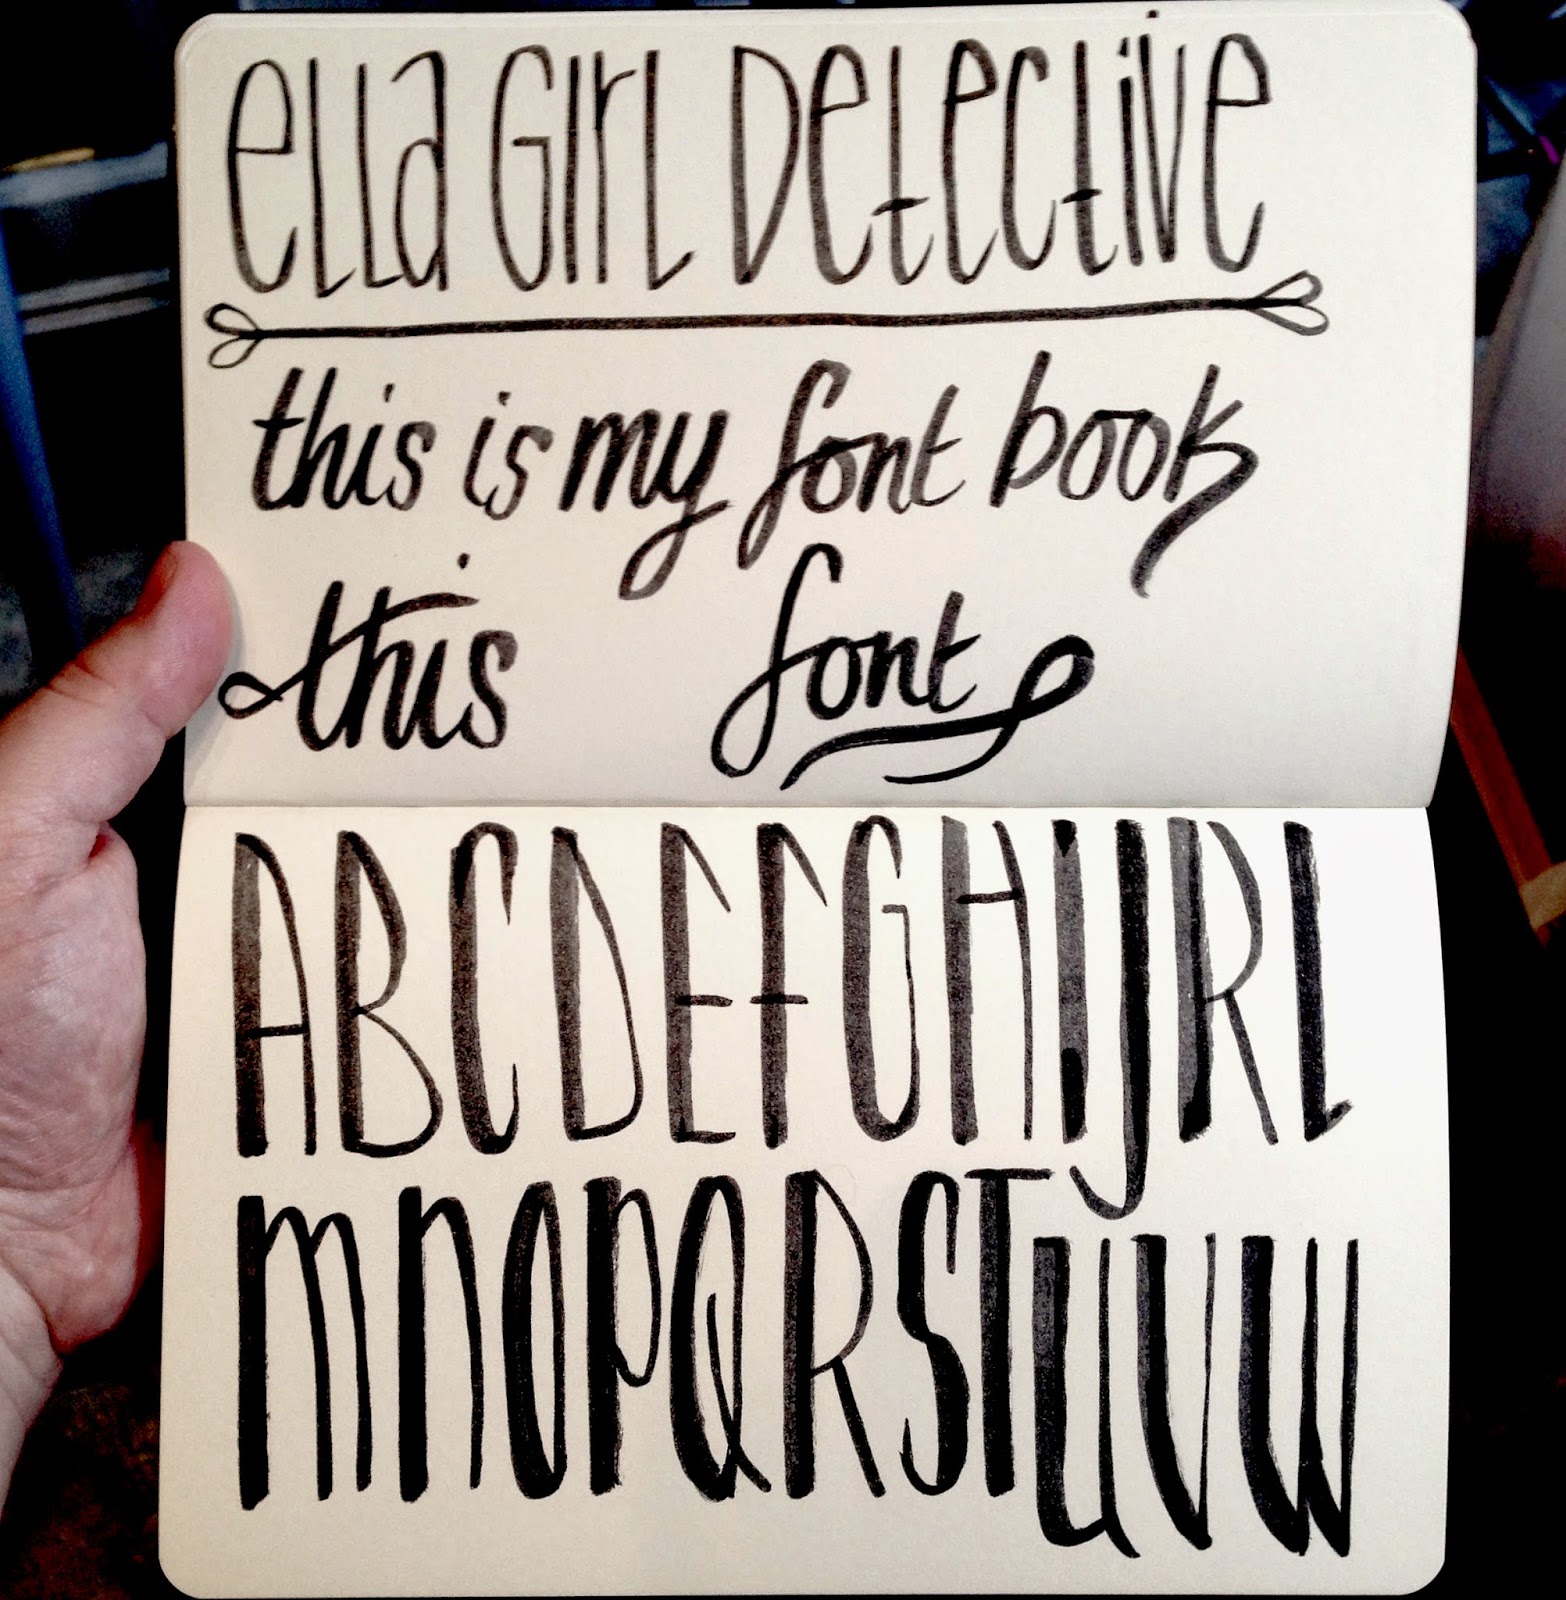 ella Girl Detective
this is my font book
this font
ABCDEFGHIJRL
mnopQRSTUVW